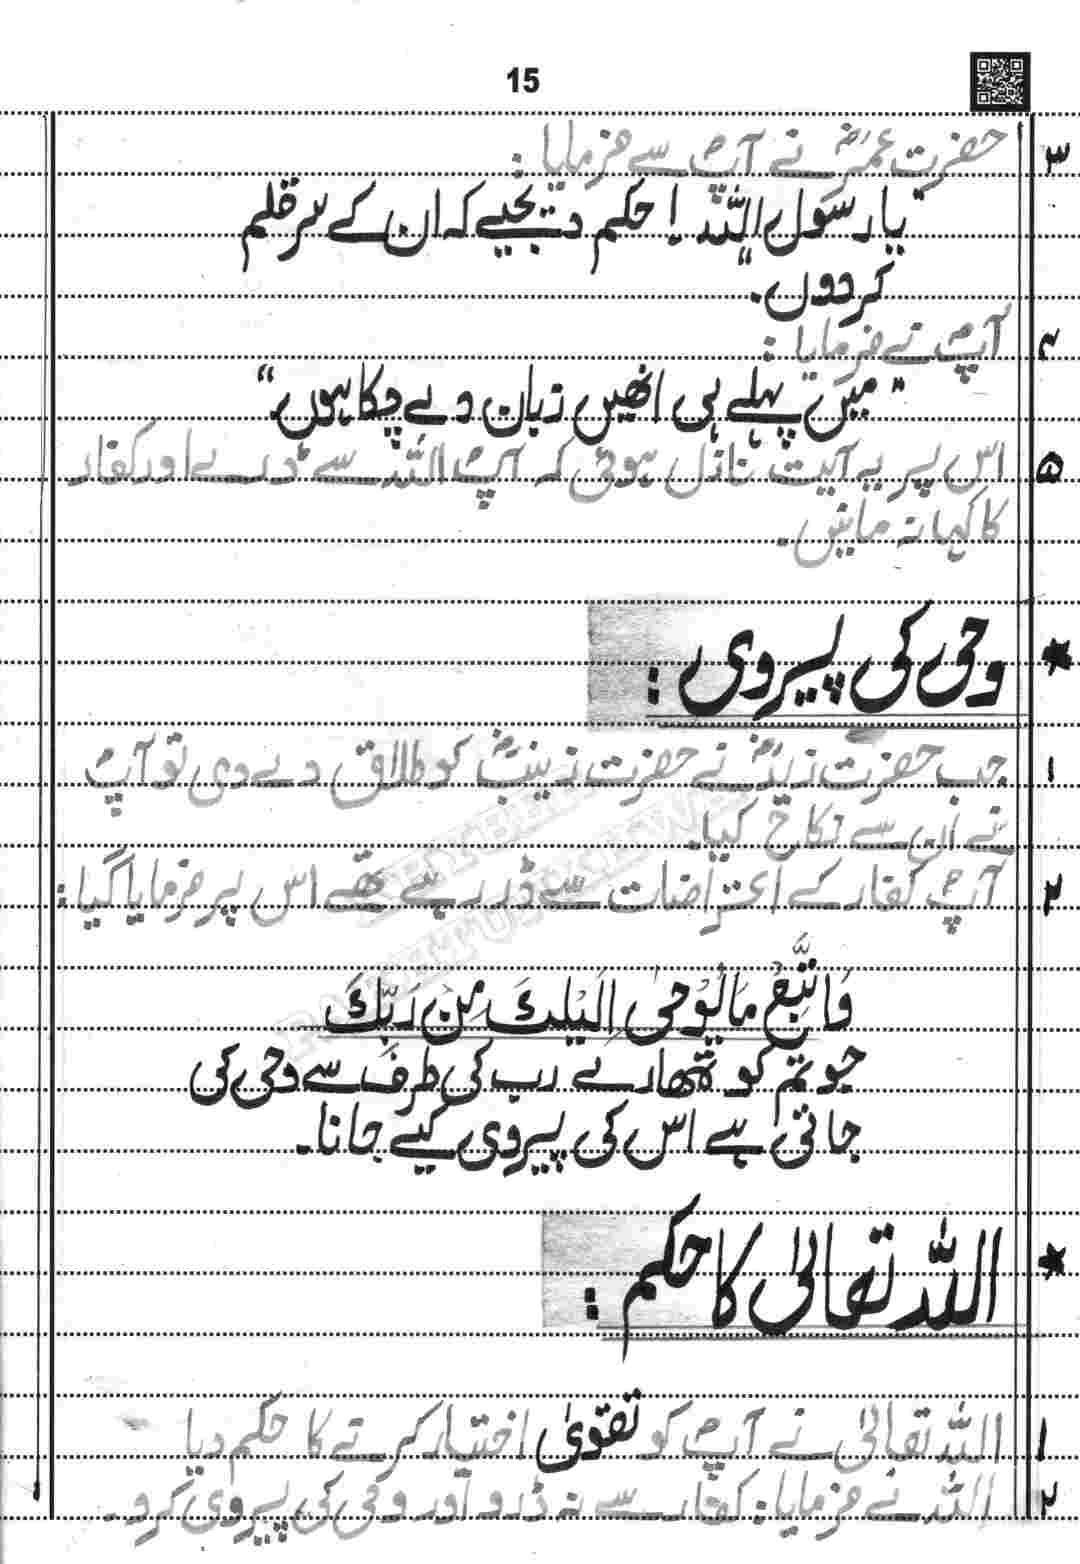 15
۳ حضرت عمرؓ نے آپؐ سے فرمایا :
"یا رسول اللہ! حکم دیجیے کہ ان کے سر قلم
کردوں۔"
۴ آپؐ نے فرمایا :
"میں پہلے ہی انھیں زبان دے چکا ہوں"
۵ اس پر یہ آیت نازل ہوئی کہ آپؐ اللہ سے ڈریے اور کفار
کا کہا نہ مانیں۔
★ وحی کی پیروی :
۱ جب حضرت زیدؓ نے حضرت زینبؓ کو طلاق دے دی تو آپؐ
نے ان سے نکاح کیا۔
۲ آپؐ کفار کے اعتراضات سے ڈر رہے تھے اس پر فرمایا گیا :
وَاتَّبِعْ مَا يُوْحٰى اِلَيْكَ مِنْ رَبِّكَ
جو تم کو تمھارے رب کی طرف سے وحی کی
جاتی ہے اس کی پیروی کیے جانا۔
★ اللہ تعالیٰ کا حکم :
۱ اللہ تعالیٰ نے آپؐ کو تقویٰ اختیار کرنے کا حکم دیا
۲ اللہ نے فرمایا : کفار سے نہ ڈرو اور وحی کی پیروی کرو۔